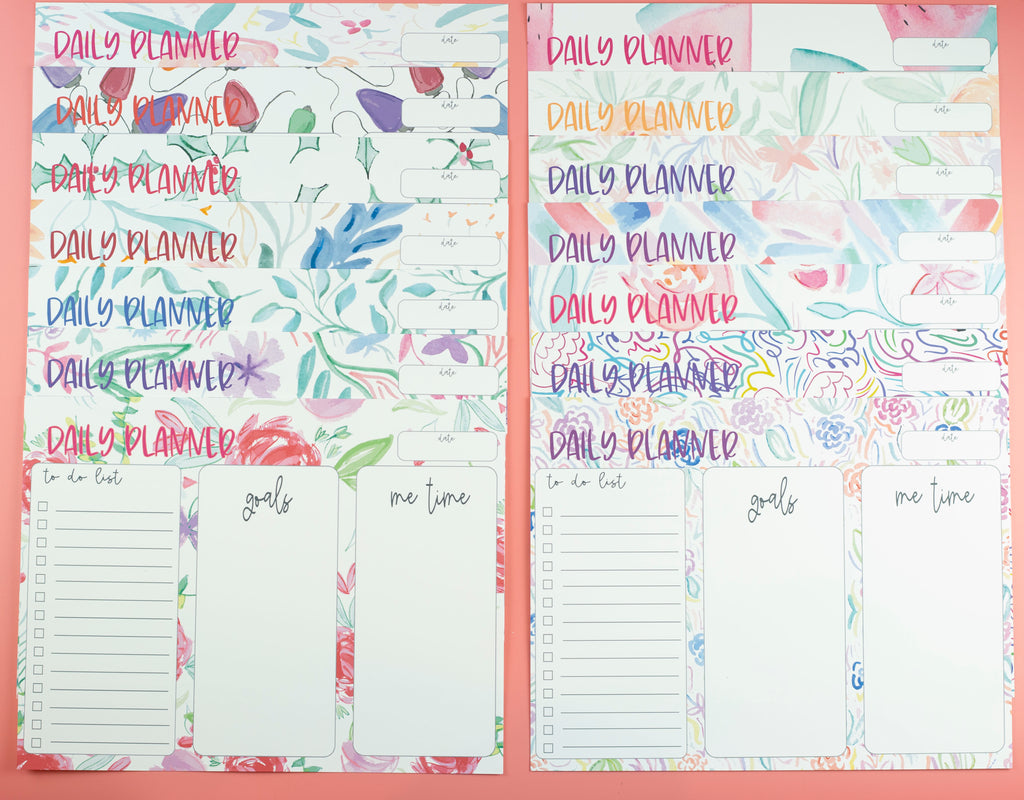 DAILY PLANNER
date
DAILY PLANNER
date
DAILY PLANNER
date
DAILY PLANNER
date
DAILY PLANNER
date
DAILY PLANNER
date
DAILY PLANNER
date
to do list
goals
me time
DAILY PLANNER
date
DAILY PLANNER
date
DAILY PLANNER
date
DAILY PLANNER
date
DAILY PLANNER
date
DAILY PLANNER
date
DAILY PLANNER
date
to do list
goals
me time